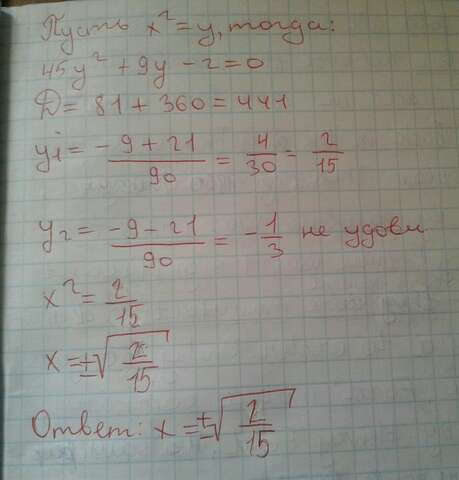 Пусть x² = y, тогда:
45y² + 9y - 2 = 0
D = 81 + 360 = 441
y₁ = (-9 + 21)/90 = 4/30 = 2/15
y₂ = (-9 - 21)/90 = -1/3 не удовл.
x² = 2/15
x = ±√(2/15)
Ответ: x = ±√(2/15)